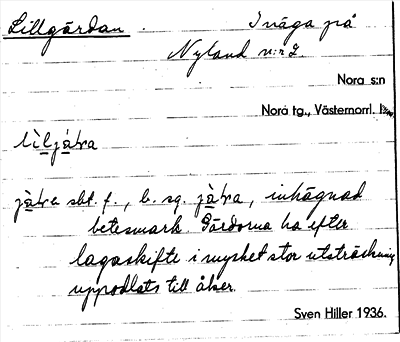 Lillgärdan. Inäga på
Nyland n:r 2.
Nora s:n
Nora tg., Västernorrl. län
jä̀ra sbt. f., b. sg. jä̀ra, inhägnad
betesmark. Gärdorna ha efter
lagaskifte i mycket stor utsträckning
uppodlats till åker.
Sven Hiller 1936.